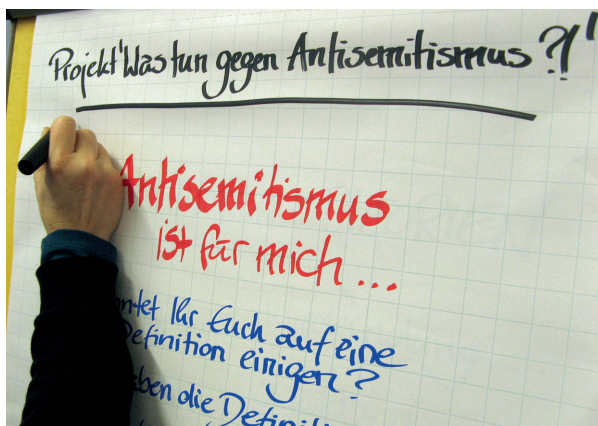 Projekt 'Was tun gegen Antisemitismus ?!'
Antisemitismus
ist für mich ...
Ihr Euch auf eine
Definition einigen?
die Definiti